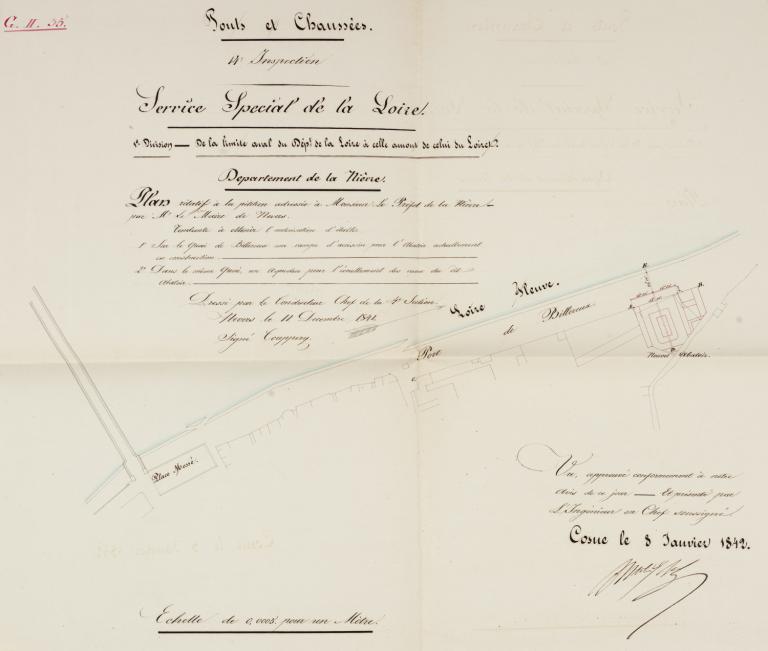 G. II. 35.
Ponts et Chaussées.
14e Inspection
Service Special de la Loire.
1e Division — De la limite aval du Dépt. de la Loire à celle amont de celui du Loiret.
Département de la Nièvre.
Plan relatif à la pétition adressée à Monsieur le Préfet de la Nièvre
par Mr. le Maire de Nevers.
Tendante à obtenir l'autorisation d'établir
1° Sur le Quai de Billereux une rampe d'accession pour l'Abatoir actuellement
en construction.
2° Dans le même Quai, un Aqueduc pour l'écoulement des eaux du dit
Abatoir.
Dressé par le Conducteur Chef de la 4e Section
Nevers le 11 Décembre 1841.
Signé
Loire Fleuve.
Port de Billereux
Nouvel Abatoir.
Place Mossé.
Vu, approuvé conformément à notre
avis de ce jour — Et présenté par
L'Ingénieur en Chef soussigné.
Cosne le 8 Janvier 1842.
Echelle de 0,0005 pour un Mètre.